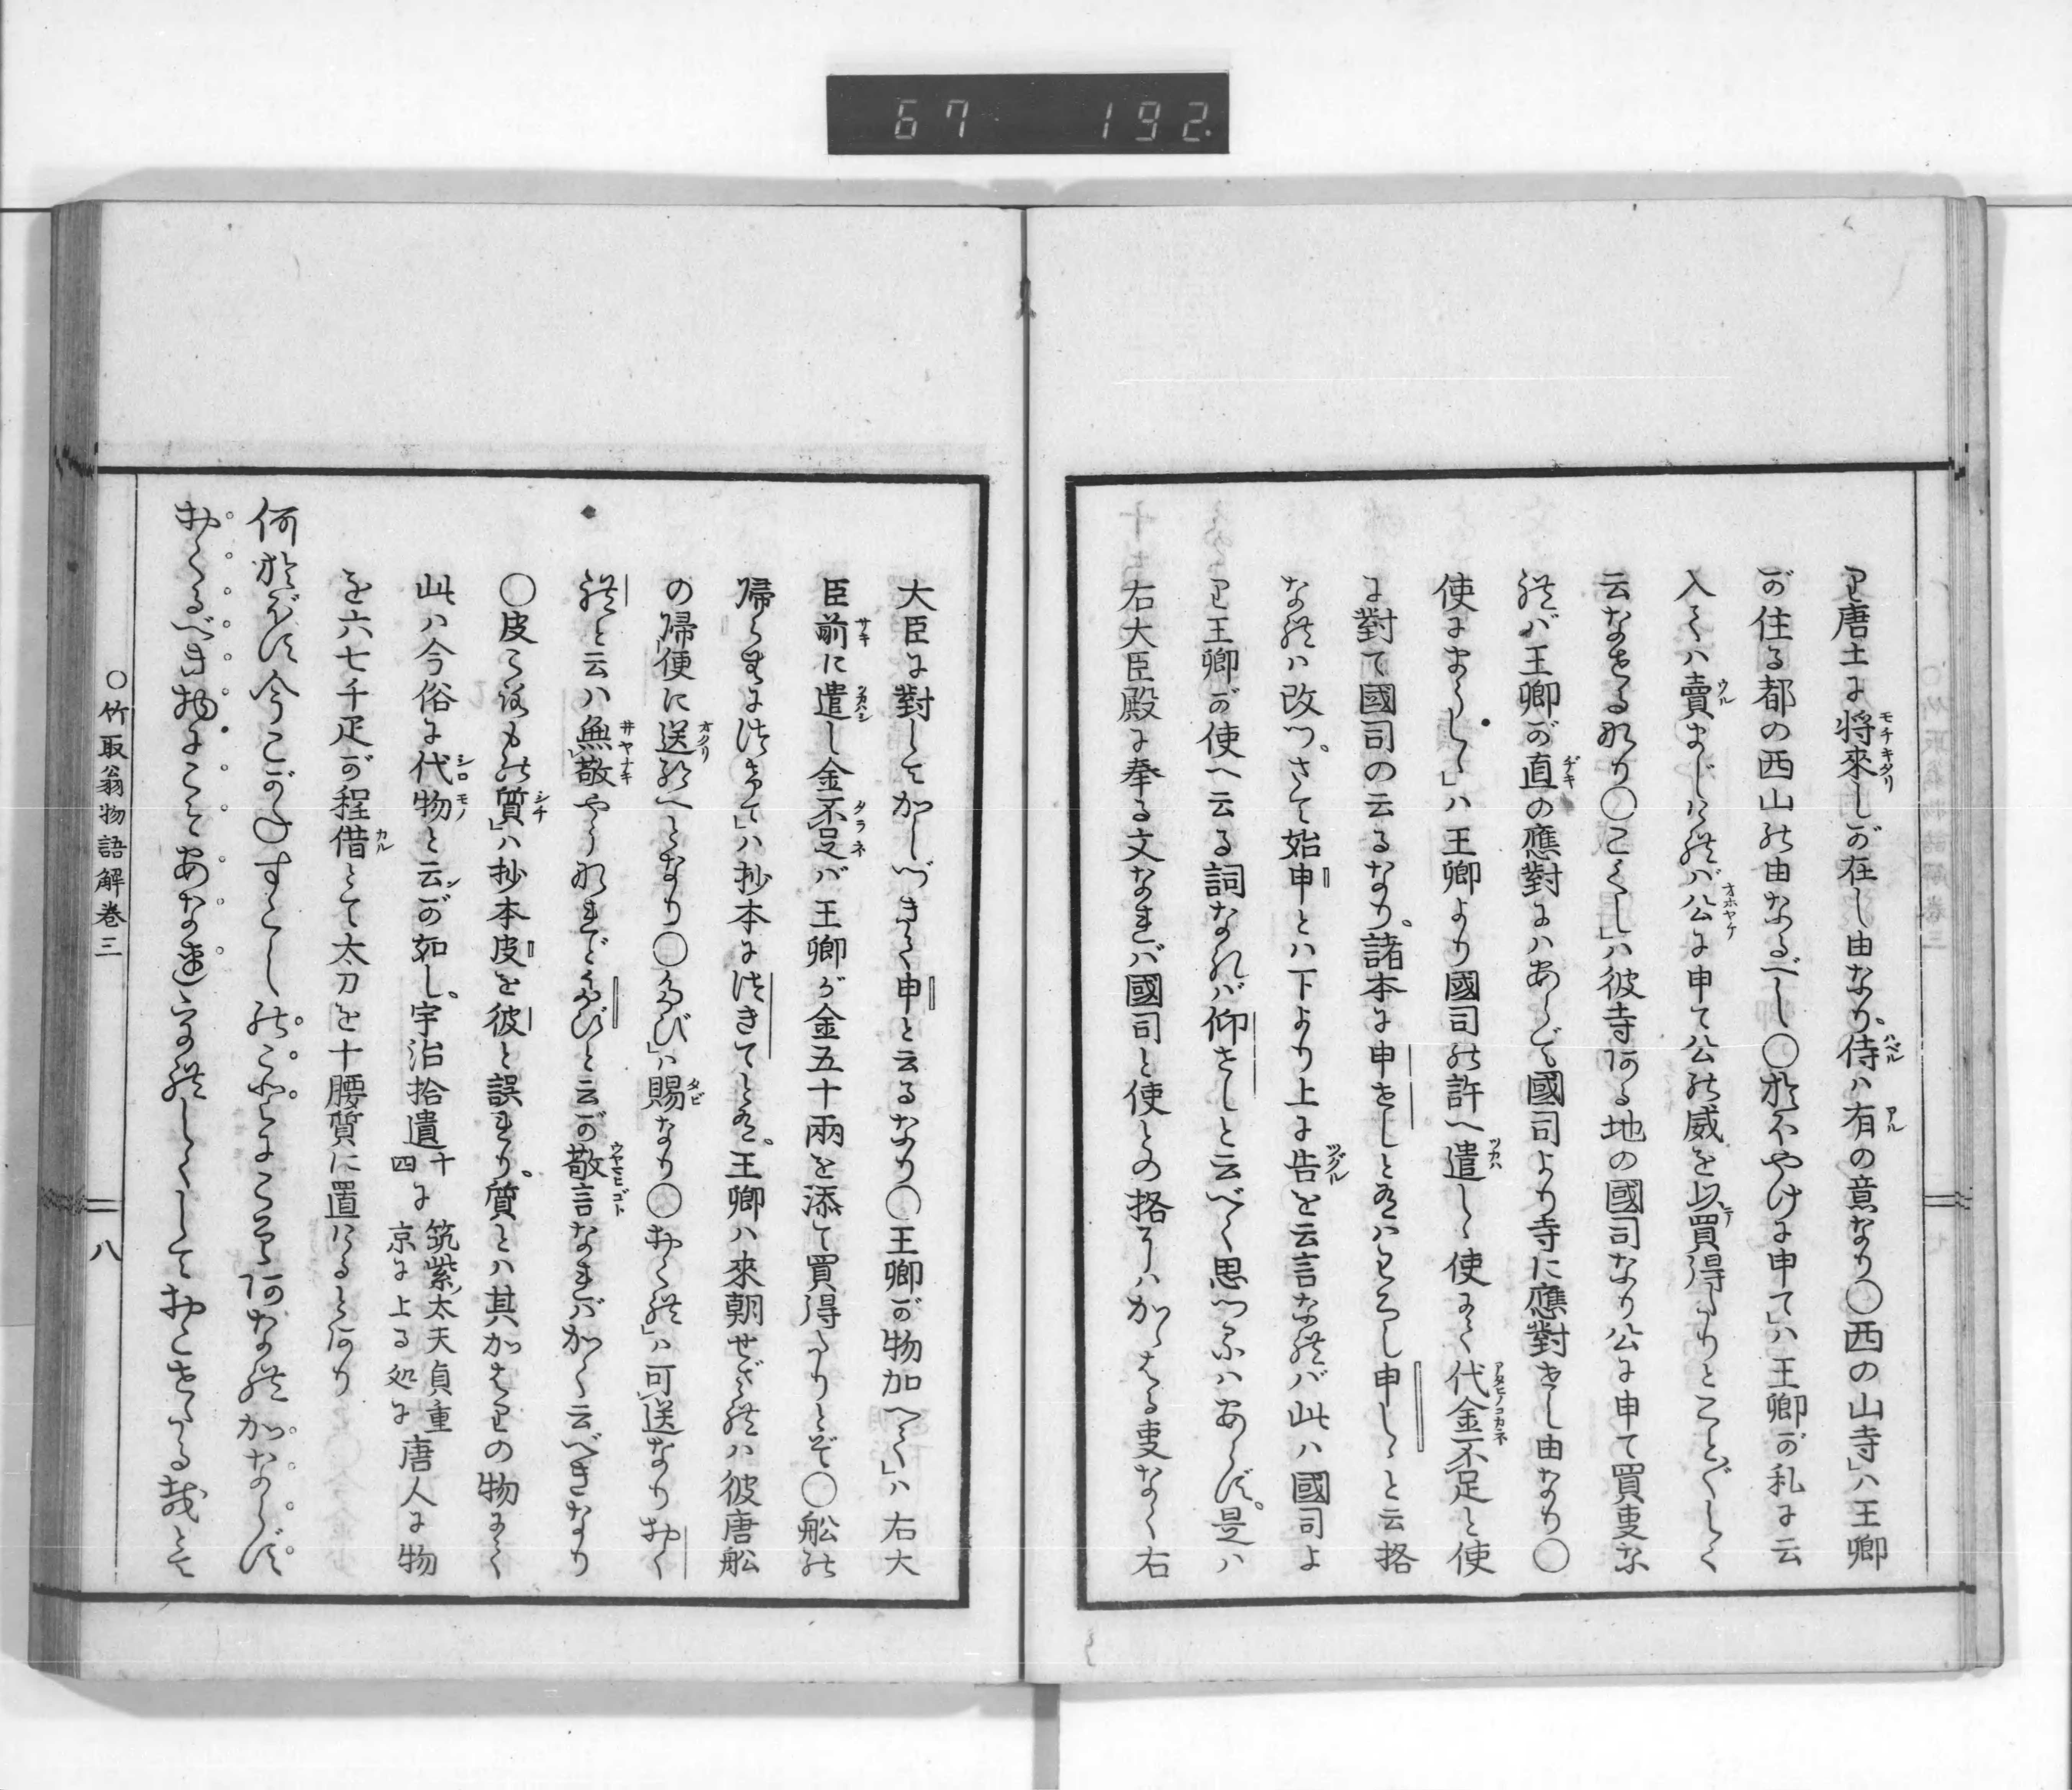 67 192.
り唐土に将來しが在し由なり、侍ハ有の意なり○西の山寺」ハ王卿
が住る都の西山の由なるべし○おほやけに申て」ハ王卿が札に云
入るハ賣まじけれバ公に申て公の威を以買得たりとことごとしく
云なせるなり○こくし」ハ彼寺ある地の國司なり公に申て買事な
れバ王卿が直の應對にハあらで國司より寺に應對せし由なり○
使にまうしゝ」ハ王卿より國司の許へ遣しゝ使にて代金不足と使
に對て國司の云るなり、諸本に申せしとあるハわろし申しゝと云格
なれハ改つ、さて始申とハ下より上に告を云言なれバ此ハ國司よ
り王卿が使へ云る詞なれバ仰せしと云べく思つれハあらず。是ハ
右大臣殿に奉る文なれバ國司と使との格にハかゝはる事なく右
大臣に對してかしづきて申と云るなり○王卿が物加へて」ハ右大
臣前に遣し金不足バ王卿が金五十兩を添て買得たりとぞ○舩の
帰らむにつけて」ハ抄本につきてとあり。王卿ハ來朝せざれハ彼唐舩
の帰便に送給へとなり○たび」ハ賜なり○おくれ」ハ可送なりおく
れと云ハ無敬やうなれどたびと云が敬言なれバかく云べきなり
○皮ころもの質」ハ抄本皮を彼と誤れり。質とハ其かはりの物にて
此ハ今俗に代物と云が如し。宇治拾遺十四に筑紫ノ太夫貞重京に上る処に唐人に物
を六七千疋が程借とて太刀を十腰質に置けるとあり
何おぼす今こがねすこしのことにこそあなれかならず
おくるべき物にこそあなれうれしくしておこせたる哉とて
○竹取翁物語解巻三
八